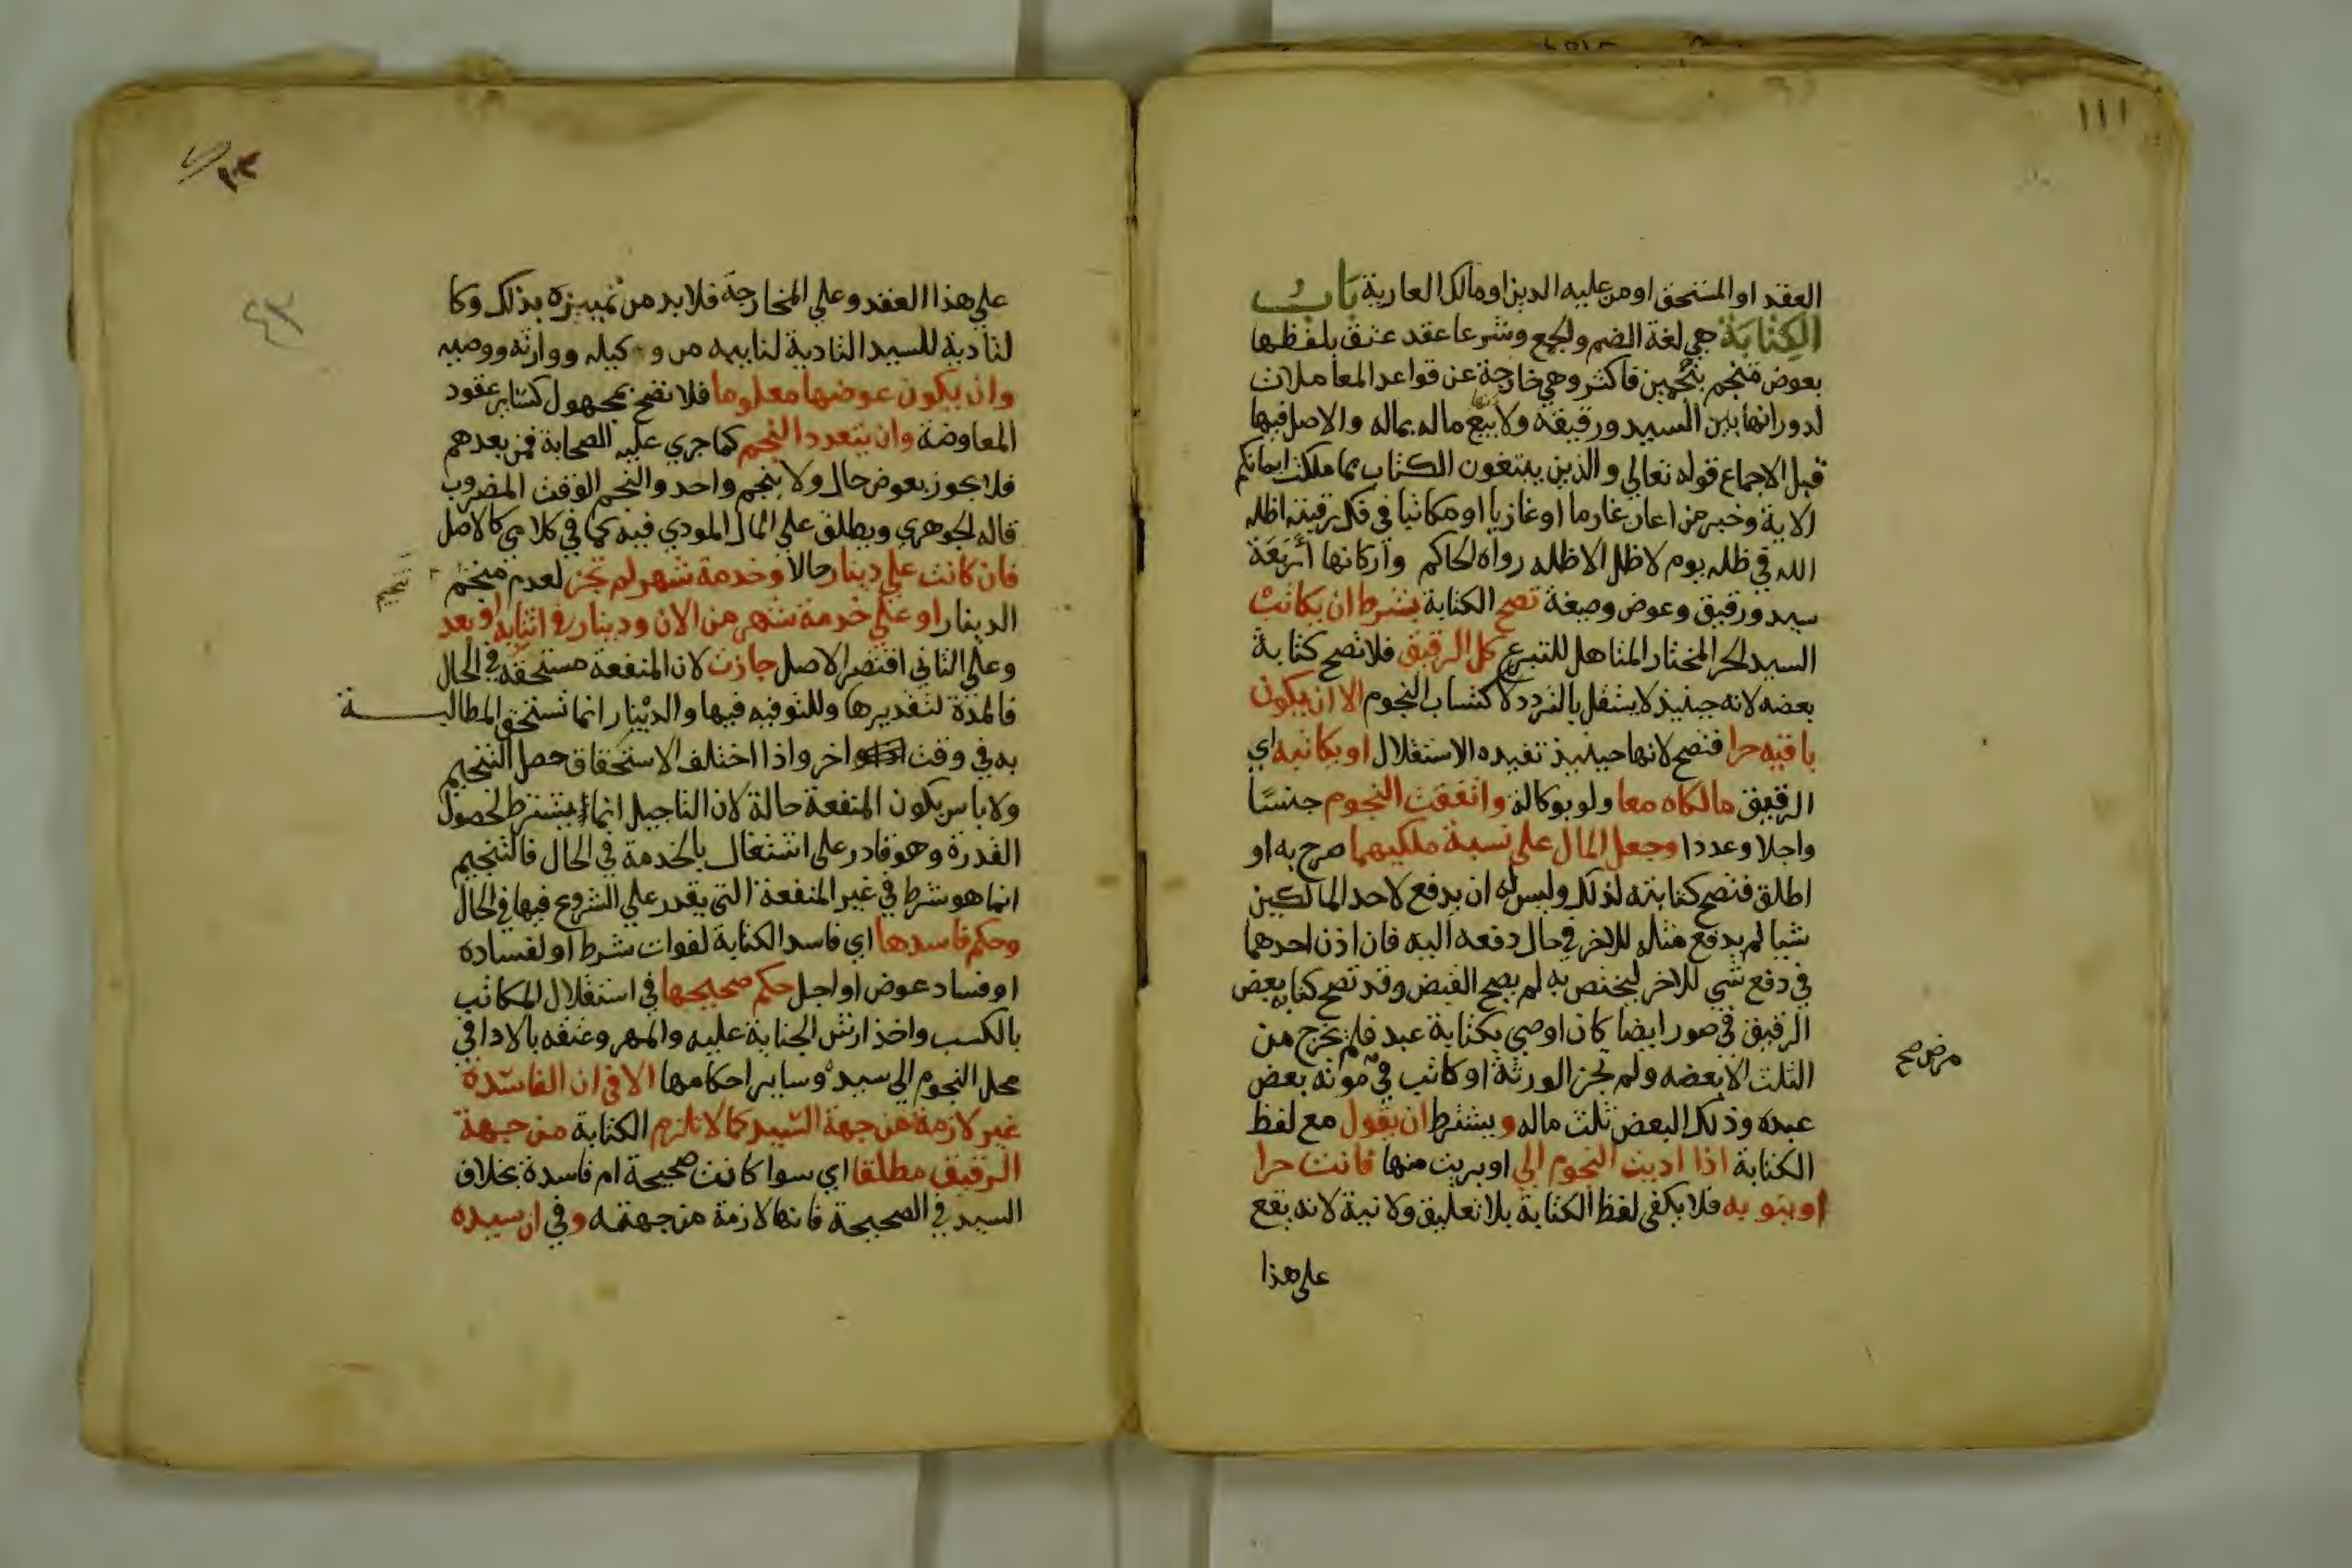 ١١١
العقد او المستحق او من عليه الدين او مالك العارية باب
الكتابة هي لغة الضم والجمع وشرعا عقد عتق بلفظها
بعوض منجم بنجمين فاكثر وهي خارجة عن قواعد المعاملات
لدورانها بين السيد ورقيقه ولانها بيع ماله بماله والاصل فيها
قبل الاجماع قوله تعالي والذين يبتغون الكتاب مما ملكت ايمانكم
الاية وخبر من اعان غارما او غازيا او مكاتبا في فك رقبته اظله
الله في ظله يوم لا ظل الا ظله رواه الحاكم واركانها اربعة
سيد ورقيق وعوض وصيغة تصح الكتابة بشرط ان يكاتب
السيد الحر المختار المتاهل للتبرع كل الرقيق فلا تصح كتابة
بعضه لانه حينيذ لا يستقل بالتردد لاكتساب النجوم الا ان يكون
باقيه حرا فتصح لانها حينيذ تفيده الاستقلال او يكاتبه اي
الرقيق مالكاه معا ولو بوكالة واتفقت النجوم جنسا
واجلا وعددا وجعل المال علي نسبة ملكيهما صرح به او
اطلق فتصح كتابته لذلك وليس له ان يدفع لاحد المالكين
شيا لم يدفع مثله للاخر في حال دفعه اليه فان اذن احدهما
في دفع شي للاخر ليختص به لم يصح القبض وقد تصح كتابة بعض
الرقيق في صور ايضا كان اوصي بكتابة عبد فلم يخرج من
الثلث الا بعضه ولم تجز الورثة او كاتب في موته بعض
مرض صح
عبده وذلك البعض ثلث ماله ويشترط ان يقول مع لفظ
الكتابة اذا اديت النجوم الي او بريت منها فانت حرا
او ينويه فلا يكفي لفظ الكتابة بلا تعليق ولا نية لانه يقع
علي هذا
علي هذا العقد وعلي المخارجة فلا بد من تمييزه بذلك وكا
لتادية للسيد التادية لنايبه من وكيله ووارثه ووصيه
وان يكون عوضها معلوما فلا تصح بمجهول كساير عقود
المعاوضة وان يتعدد النجم كما جري عليه الصحابة فمن بعدهم
فلا يجوز بعوض حال ولا بنجم واحد والنجم الوقت المضروب
قاله الجوهري ويطلق علي المال المودي فيه كما في كلامي كالاصل
فان كانت علي دينار حالا وخدمة شهر لم تجز لعدم منجم
تنجيم
الدينار او علي خدمة شهر من الان ودينار في اثنايه او بعد
وعلي الثاني اقتصر الاصل جازت لان المنفعة مستحقة في الحال
فالمدة لتقديرها وللتوفيه فيها والدينار انما تستحق المطالبة
به في وقت اخر واذا اختلف الاستحقاق حصل التنجيم
ولا باس بكون المنفعة حالة لان التاجيل انما يشترط لحصول
القدرة وهو قادر علي اشتغال بالخدمة في الحال فالتنجيم
انما هو شرط في غير المنفعة التي يقدر علي الشروع فيها في الحال
وحكم فاسدها اي فاسد الكتابة لفوات شرط او لفساده
او فساد عوض او اجل حكم صحيحها في استقلال المكاتب
بالكسب واخذ ارش الجناية عليه والمهر وعتقه بالادا في
محل النجوم الي سيده وساير احكامها الا في ان الفاسدة
غير لازمة من جهة السيد كما لا تلزم الكتابة من جهة
الرقيق مطلقا اي سوا كانت صحيحة ام فاسدة بخلاف
السيد في الصحيحة فانها لازمة من جهته وفي ان سيده